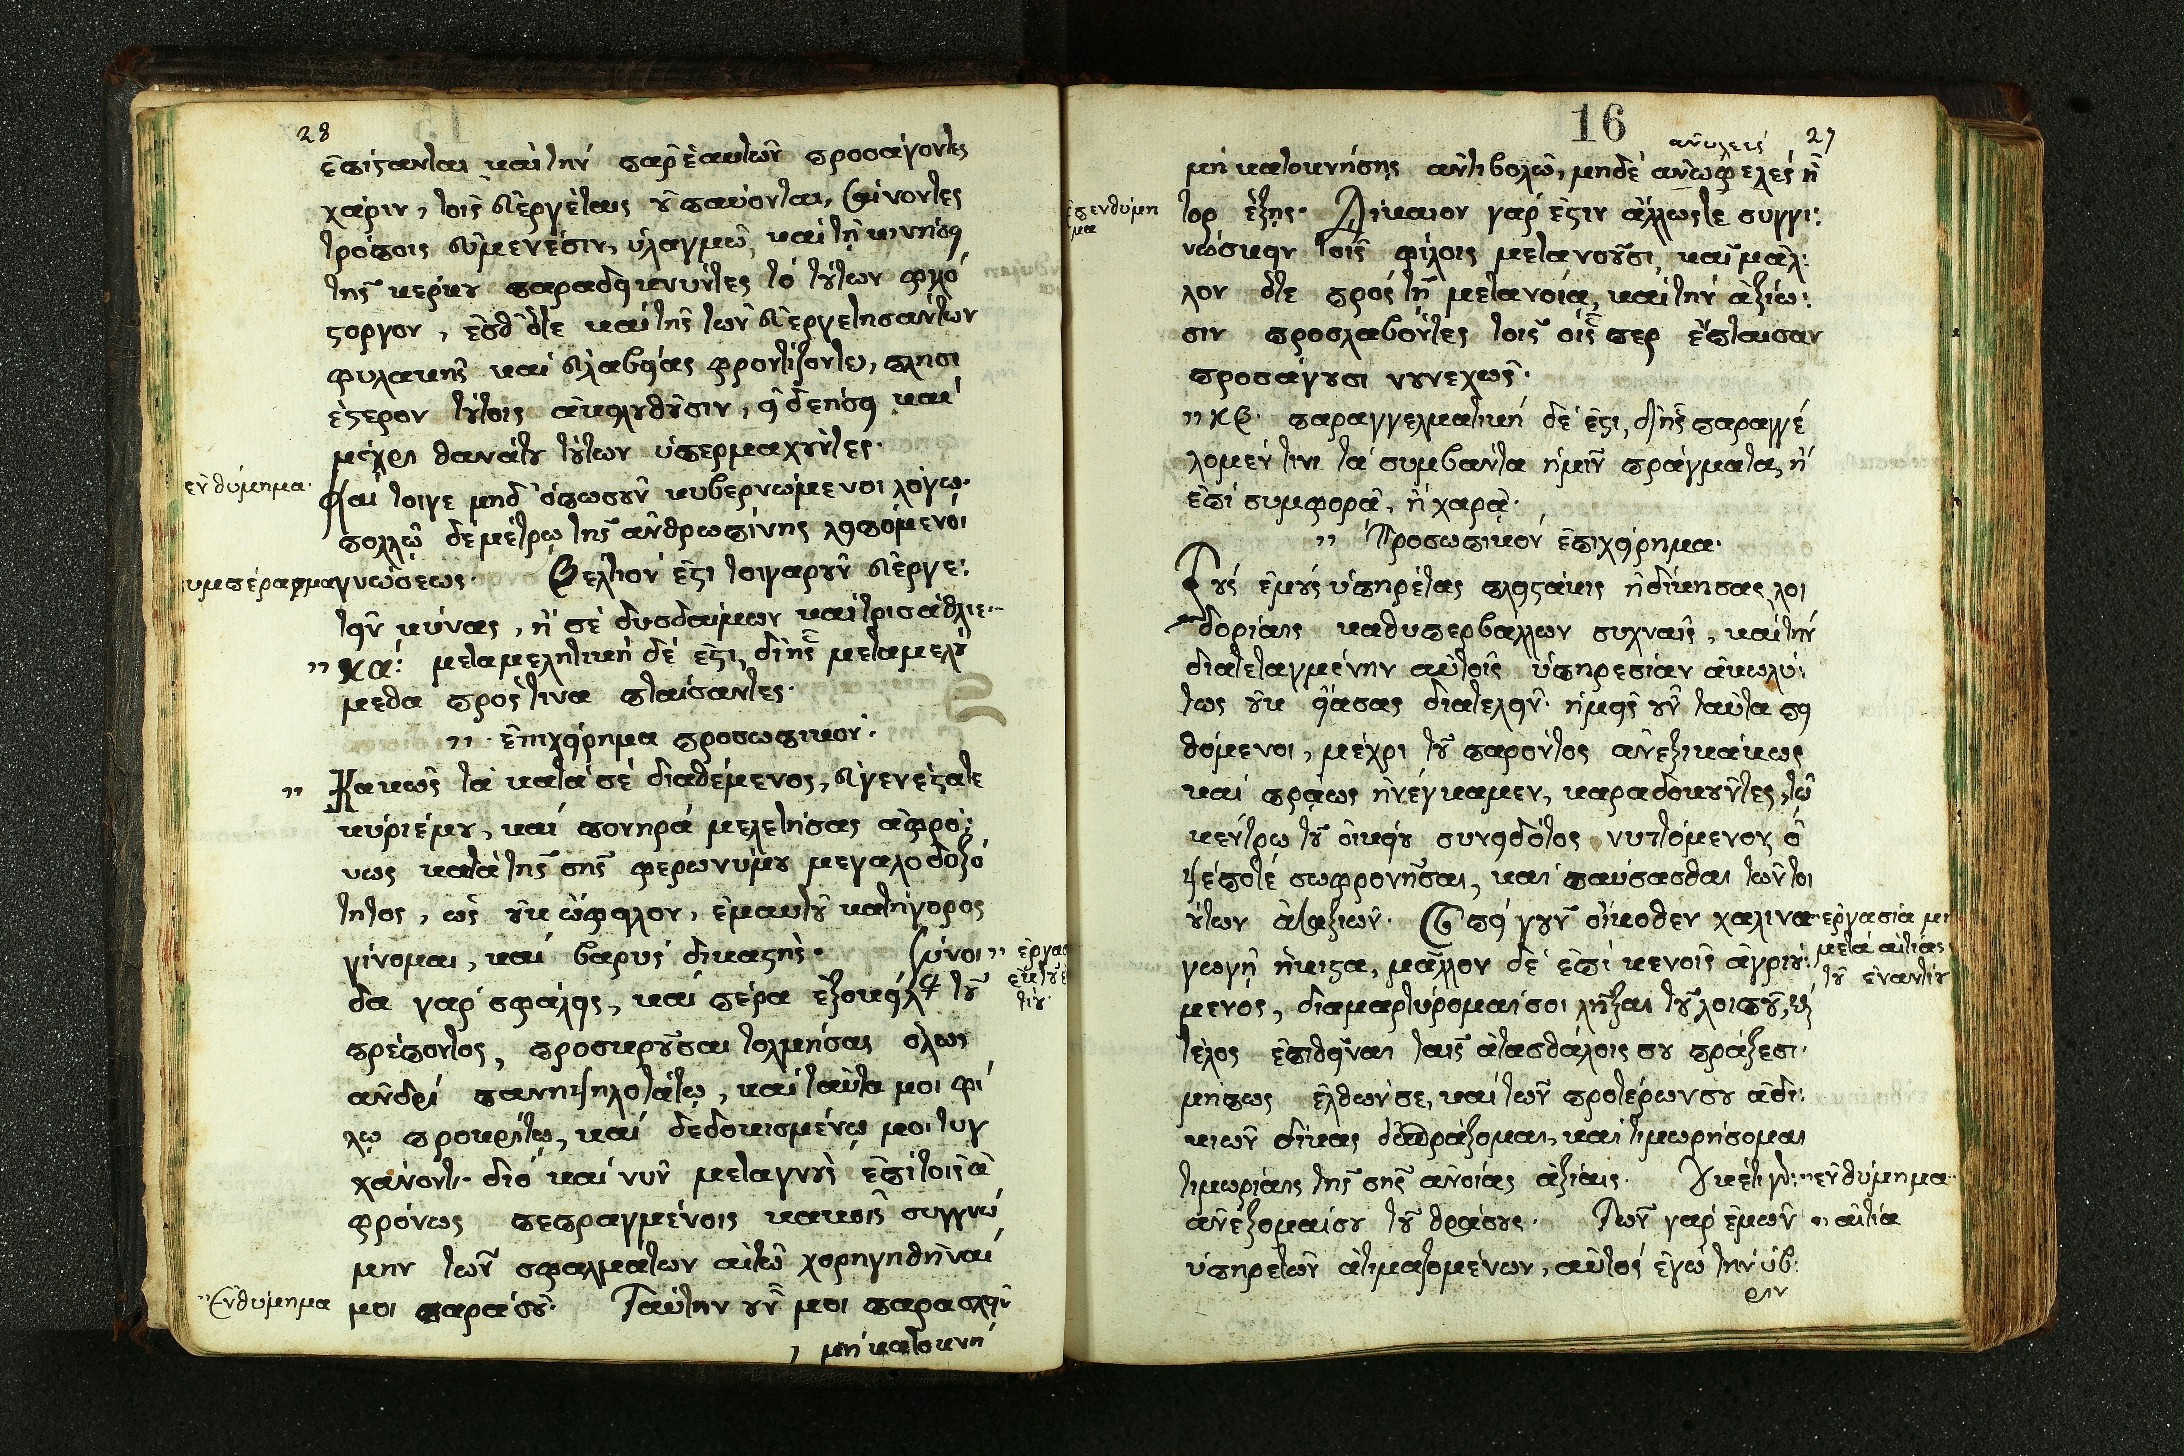 28
ἐπίστανται καὶ τὴν παρ' ἑαυτῶν προσάγοντες
χάριν, τοῖς εὐεργέταις
τρόποις εὐμενέσιν, ὑλαγμῷ, καὶ τῇ κινήσει
τῆς κέρκου παραδεικνύντες τὸ τούτων φιλό
στοργον, ἔσθ' ὅτε καὶ τῆς τῶν εὐεργετησάντων
φυλακῆς καὶ εὐλαβείας φροντίζοντες,
ἕτερον τούτοις ἀκολουθοῦσιν, εἰ δεήσει καὶ
μέχρι θανάτου τούτων ὑπερμαχοῦντες.
ἐνθύμημα.
καί τοιγε μηδ' ὁπωσοῦν κυβερνώμενοι λόγῳ.
πολλῷ δὲ μέτρῳ τῆς ἀνθρωπίνης λειπόμενοι
συμπέρασμα γνώσεως. Βέλτιον ἐστὶ τοιγαροῦν εὐεργε:
τεῖν κύνας, ἢ σὲ δυσδαίμων καὶ τρισάθλιε.
" κα: μεταμελητικὴ δέ ἐστι, δι' ἧς μεταμελού
μεθα πρός τινα πταίσαντες.
" ἐπιχείρημα προσωπικόν.
" Κακῶς τὰ κατὰ σὲ διαθέμενος, εὐγενέστατε
κύριέ μου, καὶ πονηρὰ μελετήσας ἀφρό:
νως κατὰ τῆς σῆς φερωνύμου μεγαλοδοξό
τητος, ὡς οὐκ ὤφειλον, ἐμαυτοῦ κατήγορος
γίνομαι, καὶ βαρὺς δικαστής. Σύνοι
" ἐργασ
δα γὰρ σφαλεὶς, καὶ πέρα ἐξοκείλας τοῦ
πρέποντος, προσκροῦσαι τολμήσας ὅλως
ἀνδρὶ πανυψηλοτάτῳ, καὶ ταῦτα μοι φί
λῳ προκρίτῳ, καὶ δεδοκισμένῳ μοι τυγ
χάνοντι. διὸ καὶ νῦν μεταγνοὺς ἐπὶ τοῖς ἀ
φρόνως πεπραγμένοις κακοῖς συγγνώ
μην τῶν σφαλμάτων αἰτῶ χορηγηθῆναί
" Ἐνθύμημα μοι παρὰ σοῦ. Ταύτην οὖν μοι παρασχεῖν
μὴ κατοκνή
16
27
μὴ κατοκνήσῃς ἀντιβολῶ, μηδὲ ἀνωφελὲς ἦ
τορ ἕξῃς. Δίκαιον γάρ ἐστιν ἄλλως τε συγγι:
νώσκειν τοῖς φίλοις μετανοοῦσι, καὶ μάλ:
λον ὅτε πρὸς τῇ μετανοίᾳ, καὶ τὴν ἀξίω:
σιν προσλαβόντες τοῖς οἷς περ ἔπταισαν
προσάγουσι νουνεχῶς.
" κβ. παραγγελματικὴ δέ ἐστι, δι' ἧς παραγγέ
λομέν τινι τὰ συμβάντα ἡμῖν πράγματα, ἢ
ἐπὶ συμφορᾷ, ἢ χαρᾷ.
" Προσωπικὸν ἐπιχείρημα.
Τοὺς ἐμοὺς ὑπηρέτας πλειστάκις ἠδίκησας, λοι
δορίαις καθυπερβάλλων συχναῖς, καὶ τὴν
διατεταγμένην αὐτοῖς ὑπηρεσίαν ἀκωλύ:
τως οὐκ εἴασας διατελεῖν. ἡμεῖς οὖν ταῦτα πει
θόμενοι, μέχρι τοῦ παρόντος ἀνεξικάκως
καὶ πράως ἠνέγκαμεν, καραδοκοῦντες, τῷ
κέντρῳ τοῦ οἰκείου συνειδότος νυττόμενον ὀ
ψέποτε σωφρονῆσαι, καὶ παύσασθαι τῶν τοι
ούτων ἀταξιῶν. Ἐπεὶ γοῦν οἴκοθεν χαλινα
" ἐργασία
μετὰ αἰτίας
τοῦ ἐναντίου
γωγῇ ἥκιστα, μᾶλλον δὲ ἐπὶ κενοῖς ἀγριού:
μενος, διαμαρτύρομαί σοι λῆξαι τοῦ λοιποῦ, καὶ
τέλος ἐπιθεῖναι ταῖς ἀτασθάλοις σου πράξεσι.
μήπως ἐλθών σε, καὶ τῶν προτέρων σου ἀδι:
κιῶν δίκας εἰσπράξομαι, καὶ τιμωρήσομαι
τιμωρίαις τῆς σῆς ἀνοίας ἀξίαις. Οὐκέτι γὰρ
" ἐνθύμημα.
ἀνέξομαί σου τοῦ θράσους. Τῶν γὰρ ἐμῶν
" αἰτία
ὑπηρετῶν ἀτιμαζομένων, αὐτὸς ἐγὼ τὴν ὕβ:
ριν